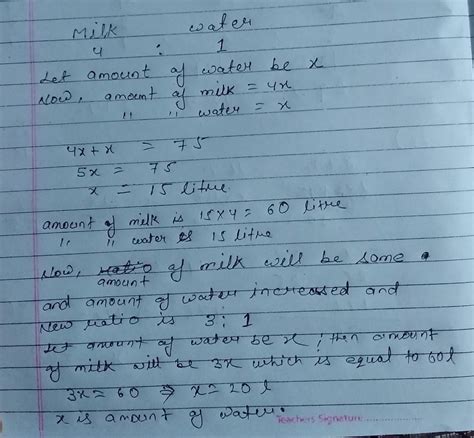 Milk water
4 : 1
Let amount of water be x
Now, amount of milk = 4x
" " water = x
4x + x = 75
5x = 75
x = 15 litre
amount of milk is 15 x 4 = 60 litre
" " water is 15 litre
Now, ratio of milk will be same
amount
and amount of water increased and
New ratio is 3 : 1
Let amount of water be x ; then amount
of milk will be 3x which is equal to 60 l
3x = 60 ⇒ x = 20 l
x is amount of water.
Teachers Signature..............